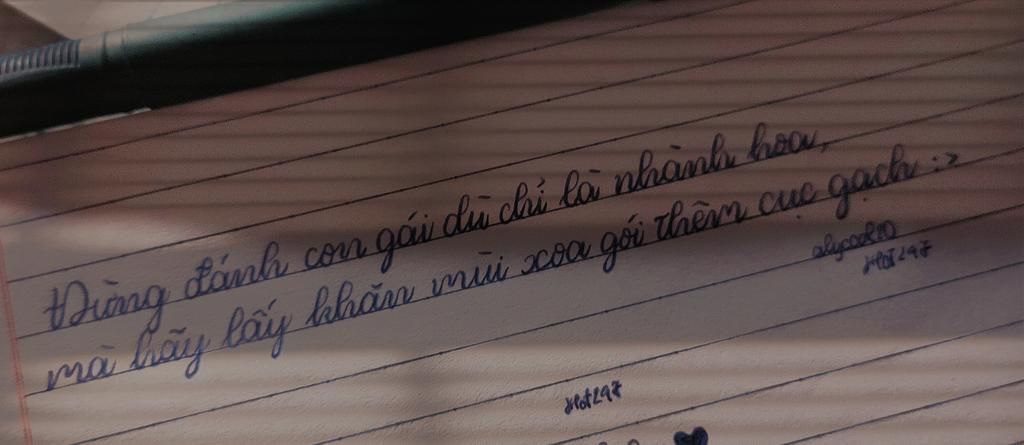 Đừng đánh con gái dù chỉ là nhành hoa,
mà hãy lấy khăn mùi xoa gói thêm cục gạch :>